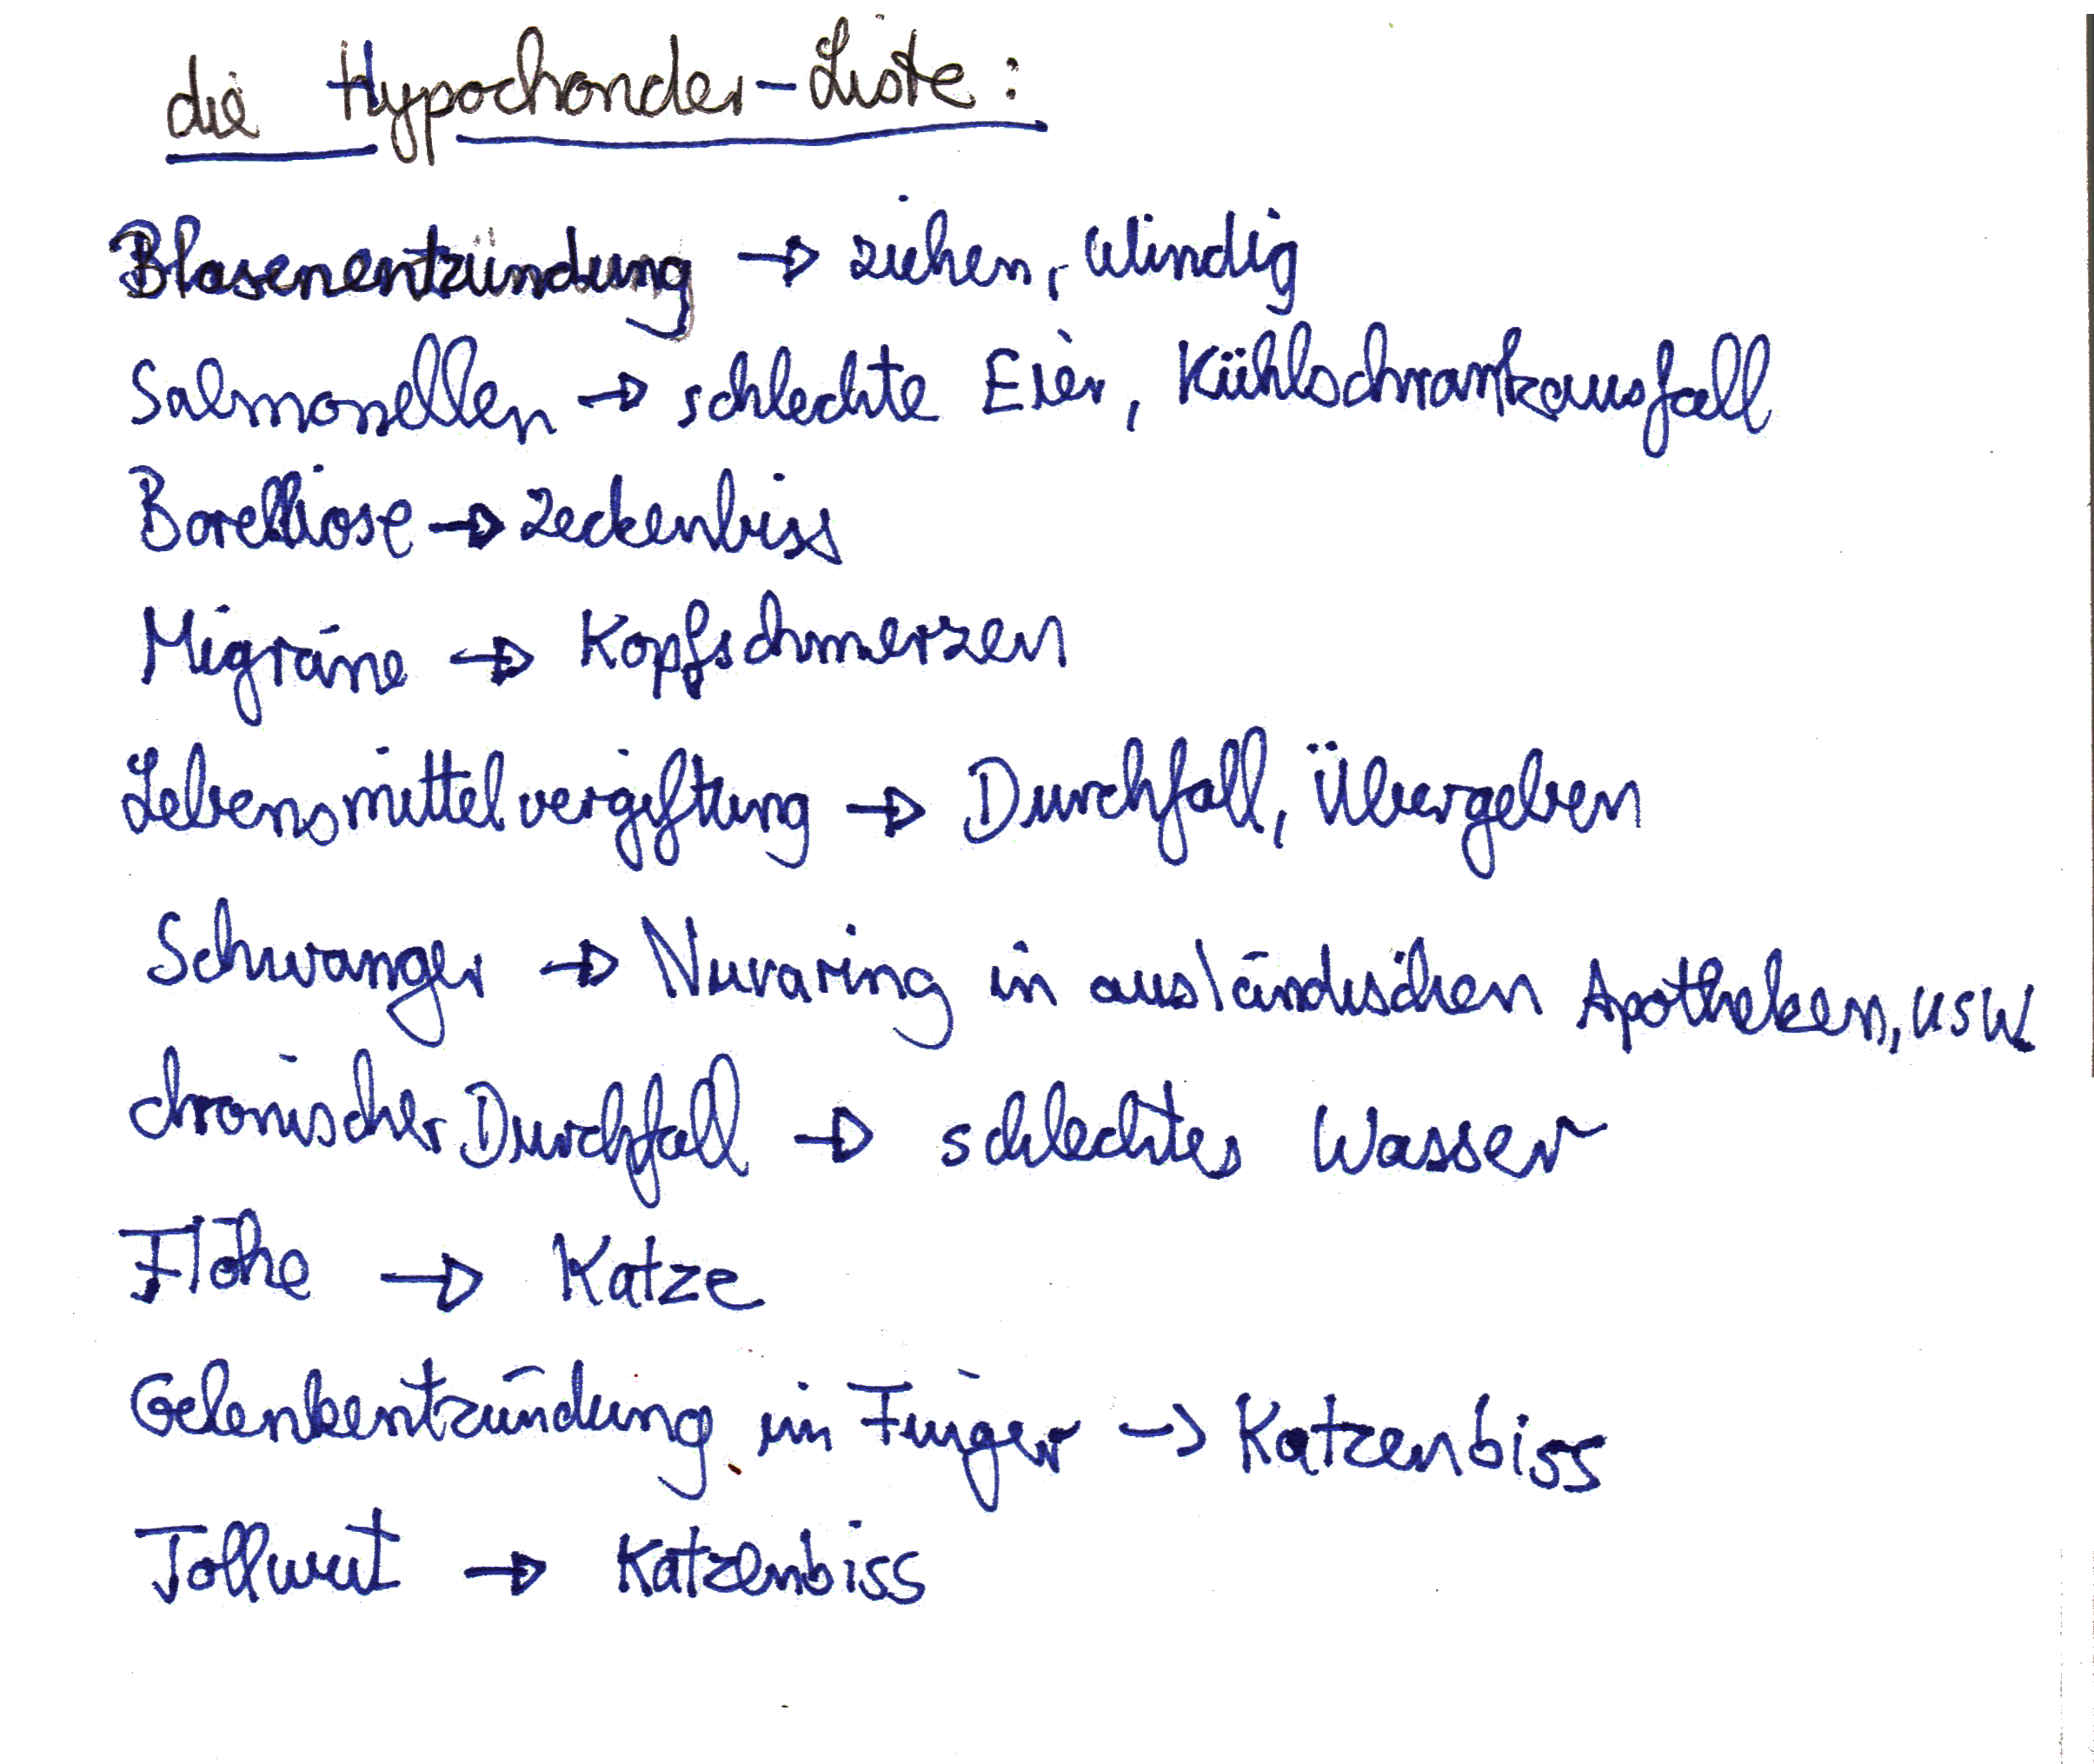 die Hypochonder-Liste:
Blasenentzündung → ziehen, windig
Salmonellen → schlechte Eier, Kühlschrankausfall
Borelliose → Zeckenbiss
Migräne → Kopfschmerzen
Lebensmittelvergiftung → Durchfall, Übergeben
Schwanger → Nuvaring in ausländischen Apotheken, usw
chronischer Durchfall → schlechtes Wasser
Flöhe → Katze
Gelenkentzündung im Finger → Katzenbiss
Tollwut → Katzenbiss